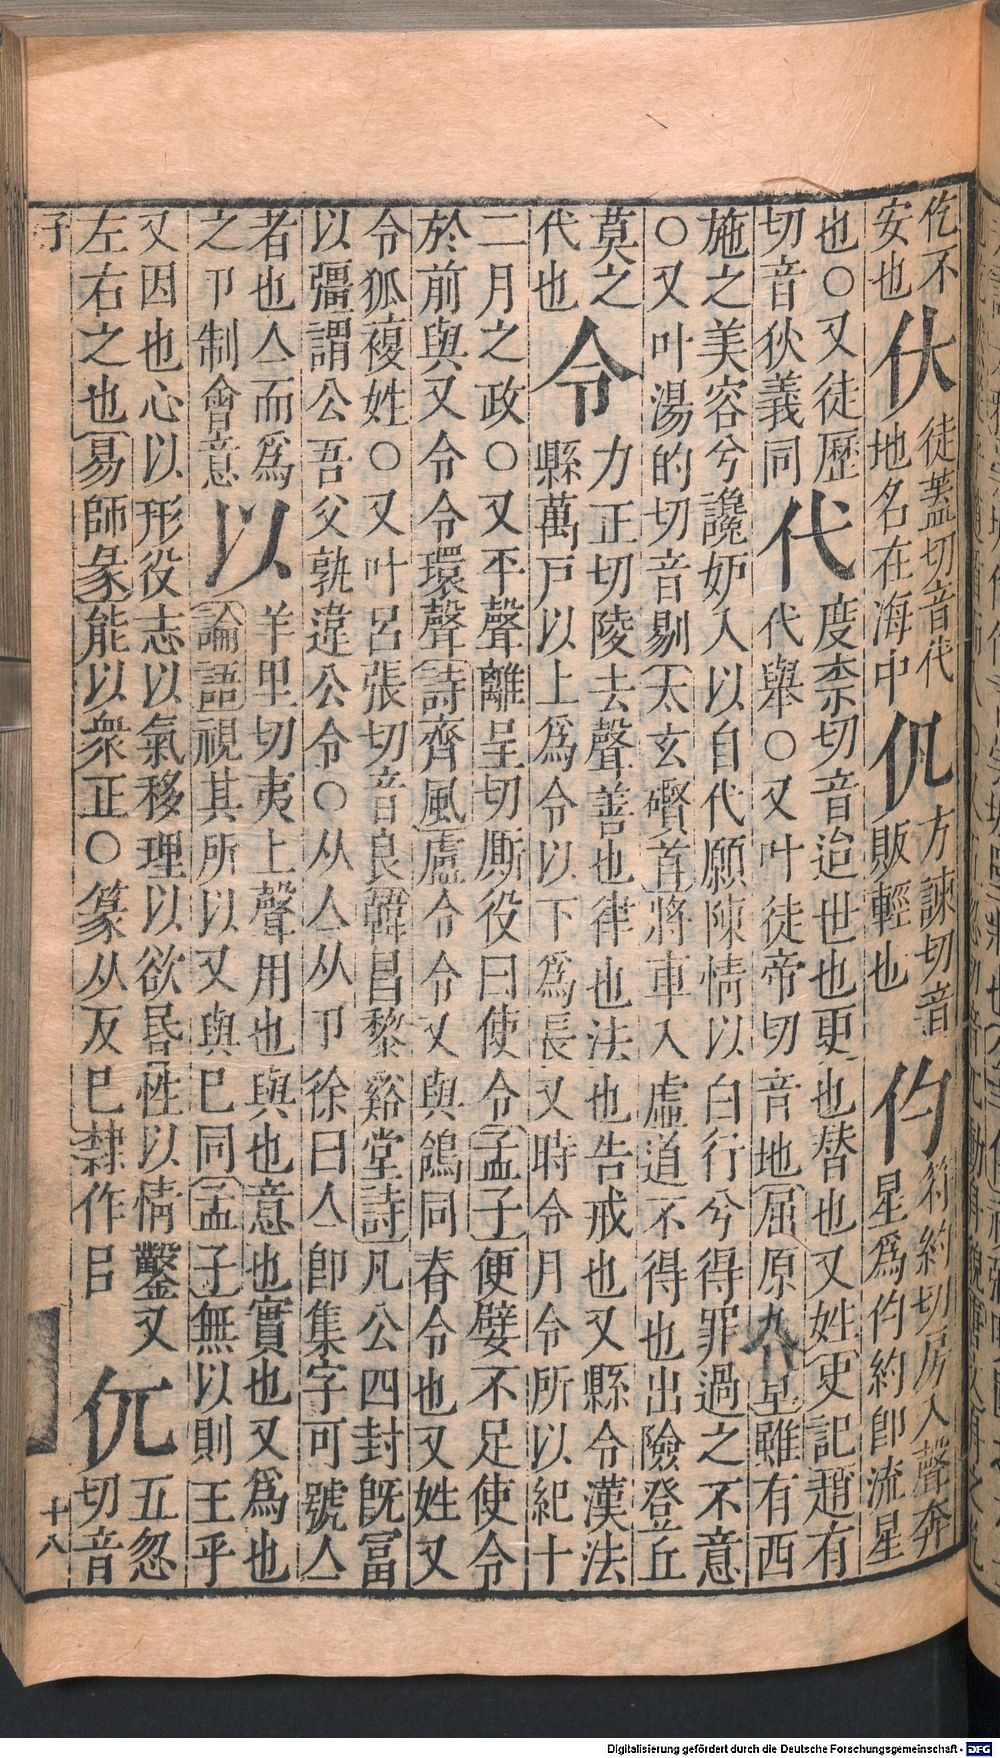 仡不
安也
㐲
徒蓋切音代
地名在海中
方諫切音
販輕也
仢
約切房入聲奔
星爲仢約即流星
也○又徒歷
切音狄義同
代
度柰切音迨世也更也替也又姓史記趙有
代舉○又叶徒帝切音地屈原九章雖有西
施之美容兮讒妒入以自代願陳情以白行兮得罪過之不意
○又叶湯的切音剔太玄礥首將車入虛道不得也出險登丘
莫之
代也
令
力正切陵去聲善也律也法也告戒也又縣令漢法
縣萬戸以上爲令以下爲長又時令月令所以紀十
二月之政○又平聲離呈切厮役曰使令孟子便嬖不足使令
於前與又令令環聲詩齊風盧令令又與鴒同春令也又姓又
令狐複姓○又叶呂張切音良韓昌黎谿堂詩凡公四封旣富
以彊謂公吾父孰違公令○从亼从卩徐曰亼即集字可號亼
者也亼而爲
之卩制會意
以
羊里切夷上聲用也與也意也實也又爲也
論語視其所以又與巳同孟子無以則王乎
又因也心以形役志以氣移理以欲昬性以情鑿又
左右之也易師彖能以衆正○篆从反巳隸作㠯
㐳
五忽
切音
子
十八
Digitalisierung gefördert durch die Deutsche Forschungsgemeinschaft - DFG